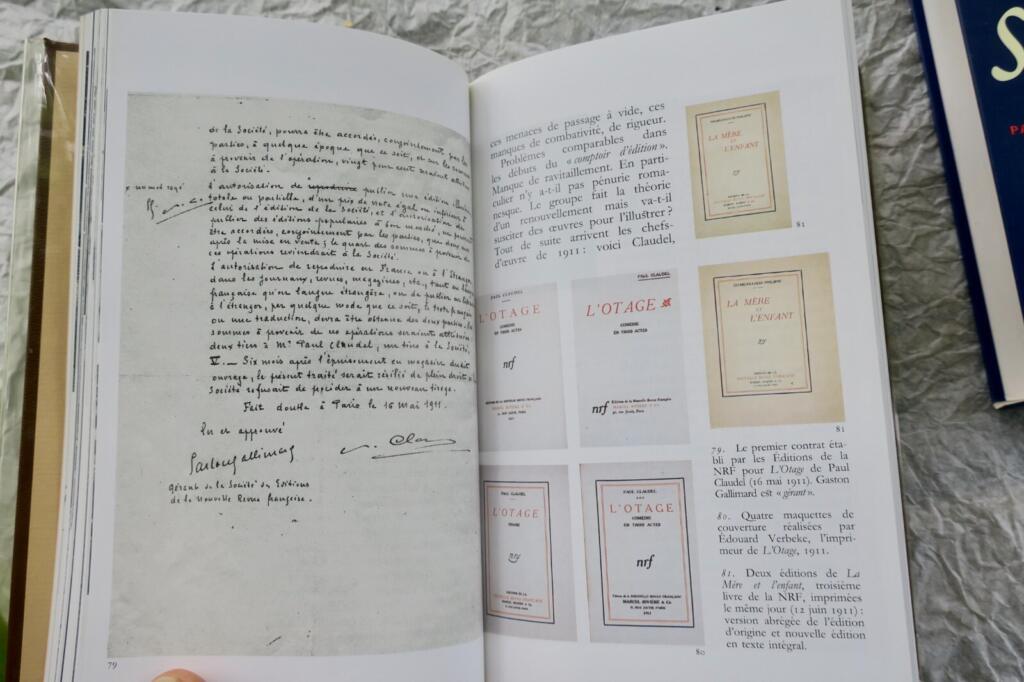 de la Société, pourra être accordés, conjointement par les
parties, à quelque époque que ce soit, et sur les sommes
à provenir de l'opération, vingt pour cent seraient attribués
à la Société.
L'autorisation de reproduire publier une édition illustrée
totale ou partielle, d'un prix de vente égal ou inférieur à
celui de l'édition de la Société, et l'autorisation de
publier des éditions populaires à bon marché, ne pourront
être accordées, conjointement par les parties, que deux ans
après la mise en vente ; le quart des sommes à provenir de
ces opérations reviendrait à la Société.
L'autorisation de reproduire en France ou à l'Étranger
dans les journaux, revues, magazines, etc., tant en langue
française qu'en langue étrangère, ou de publier en librairie
à l'étranger, par quelque mode que ce soit, le texte français
ou une traduction, devra être obtenue des deux parties. Les
sommes à provenir de ces opérations seraient attribuées
deux tiers à Mr. Paul Claudel, un tiers à la Société.
V.— Six mois après l'épuisement en magasin dudit
ouvrage, le présent traité serait résilié de plein droit si la
Société refusait de procéder à un nouveau tirage.
Fait double à Paris le 16 Mai 1911.
Lu et approuvé
Gaston Gallimard
gérant de la Société des Éditions
de la Nouvelle Revue française.
79
ces menaces de passage à vide, ces
manques de combativité, de rigueur.
Problèmes comparables dans
les débuts du « comptoir d'édition ».
Manque de ravitaillement. En parti-
culier n'y a-t-il pas pénurie roma-
nesque. Le groupe fait la théorie
d'un renouvellement mais va-t-il
susciter des œuvres pour l'illustrer ?
Tout de suite arrivent les chefs-
d'œuvre de 1911 : voici Claudel,
CHARLES-LOUIS PHILIPPE
LA MÈRE
ET
L'ENFANT
81
PAUL CLAUDEL
L'OTAGE
COMÉDIE
EN TROIS ACTES
nrf
ÉDITIONS DE LA NOUVELLE REVUE FRANÇAISE
MARCEL RIVIÈRE & Cie
1911
PAUL CLAUDEL
L'OTAGE
COMÉDIE
EN TROIS ACTES
nrf
Éditions de la Nouvelle Revue Française
MARCEL RIVIÈRE & Cie
CHARLES-LOUIS PHILIPPE
LA MÈRE
ET
L'ENFANT
nrf
ÉDITIONS DE LA
NOUVELLE REVUE FRANÇAISE
81
PAUL CLAUDEL
L'OTAGE
DRAME
nrf
ÉDITIONS DE LA
NOUVELLE REVUE FRANÇAISE
PAUL CLAUDEL
L'OTAGE
COMÉDIE
EN TROIS ACTES
nrf
Éditions de la NOUVELLE REVUE FRANÇAISE
MARCEL RIVIÈRE & Cie
31, RUE JACOB, PARIS
1911
80
79. Le premier contrat éta-
bli par les Éditions de la
NRF pour L'Otage de Paul
Claudel (16 mai 1911). Gaston
Gallimard est « gérant ».
80. Quatre maquettes de
couverture réalisées par
Édouard Verbeke, l'impri-
meur de L'Otage, 1911.
81. Deux éditions de La
Mère et l'enfant, troisième
livre de la NRF, imprimées
le même jour (12 juin 1911) :
version abrégée de l'édition
d'origine et nouvelle édition
en texte intégral.
S
PA